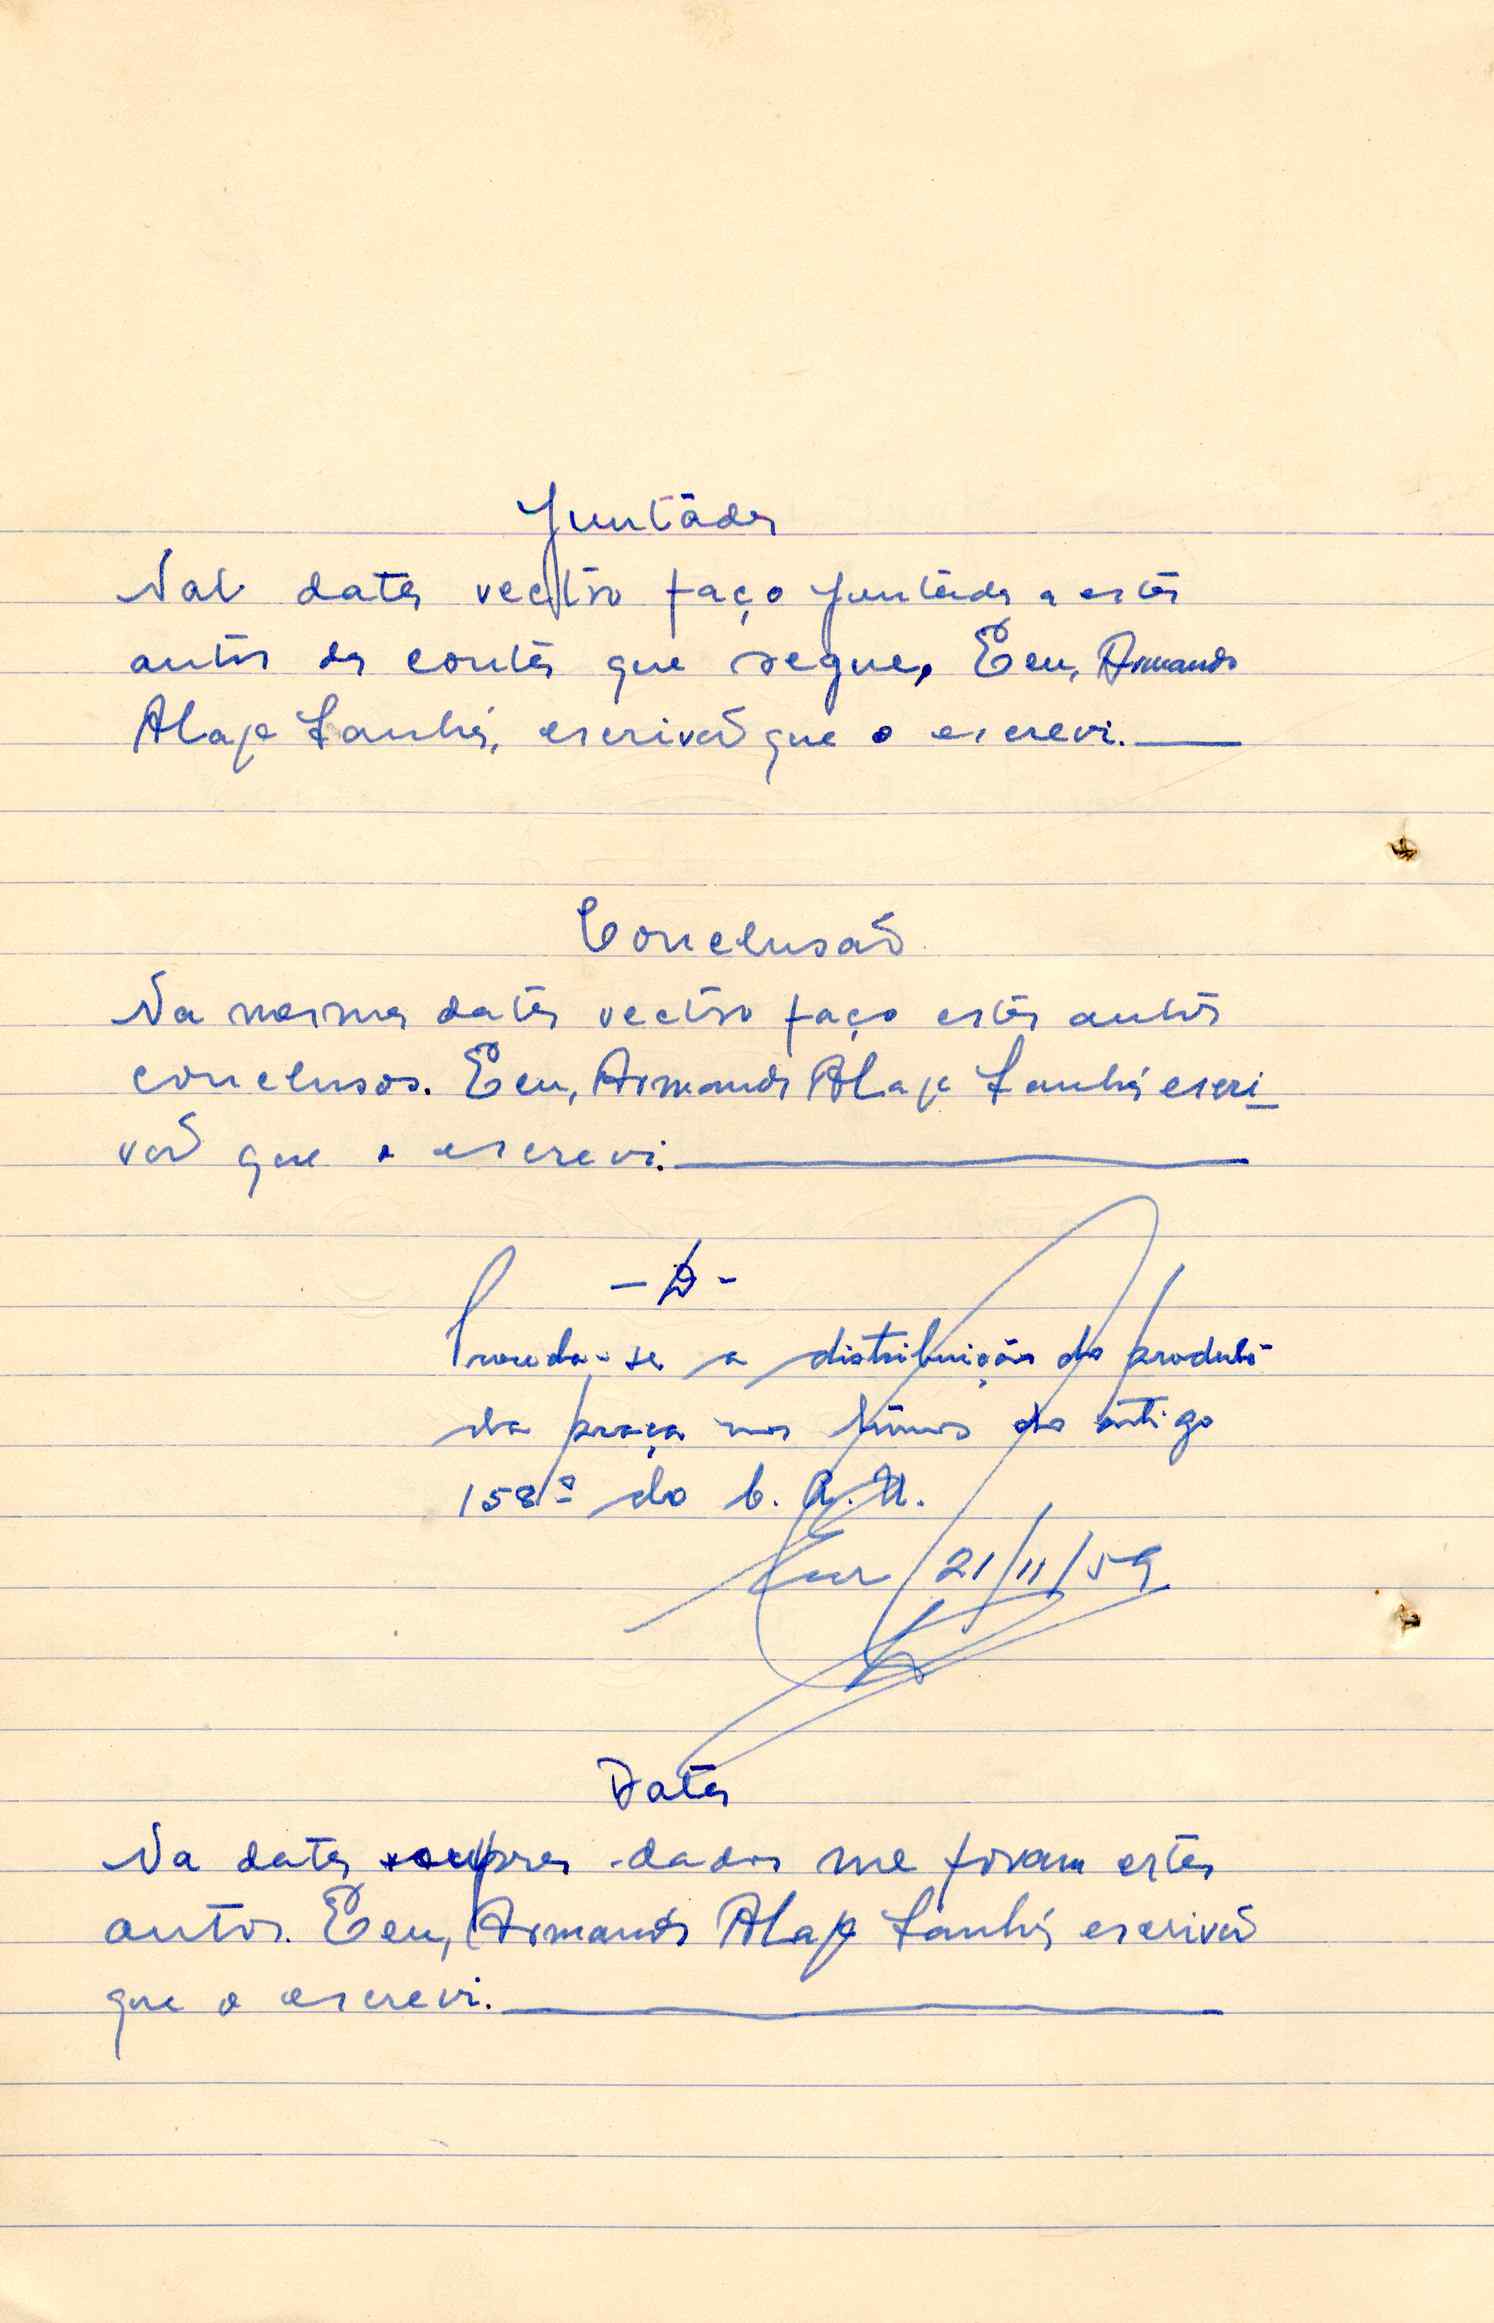 Juntada
Na data rectro faço juntada a estes
autos da conta que segue, E eu, Armando
Alage Lanhá, escrivão que o escrevi.
Conclusão
Na mesma data rectro faço estes autos
conclusos. E eu, Armando Alage Lanhá escri-
vão que o escrevi.
- D -
Proceda-se a distribuição do producto
da praça nos termos do artigo
158º do C. A. U.
Em 21/11/59
Data
Na data supra dados me foram estes
autos. E eu, Armando Alage Lanhá escrivão
que o escrevi.